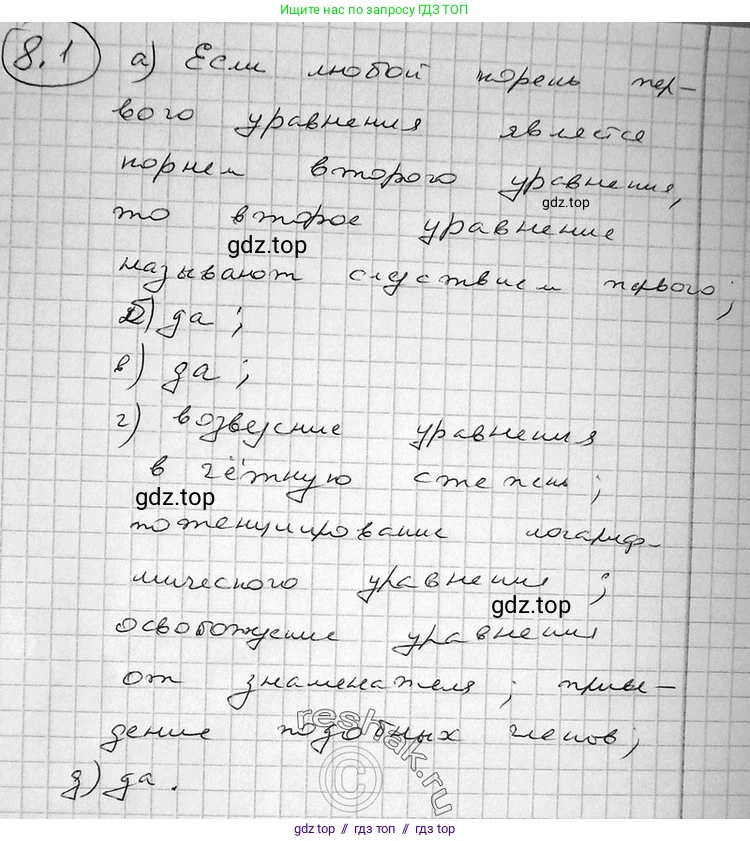 Ищите нас по запросу ГДЗ ТОП
8.1 а) Если любой корень пер-
вого уравнения является
корнем второго уравнения,
gdz.top
то второе уравнение
gdz.top
называют следствием первого;
б) да;
в) да;
г) возведение уравнения
в чётную степень;
gdz.top
потенцирование логариф-
мического уравнения;
gdz.top
освобождение уравнения
от знаменателя; приве-
дение подобных членов;
reshak.ru
©
д) да.
gdz.top // гдз топ // gdz.top // гдз топ